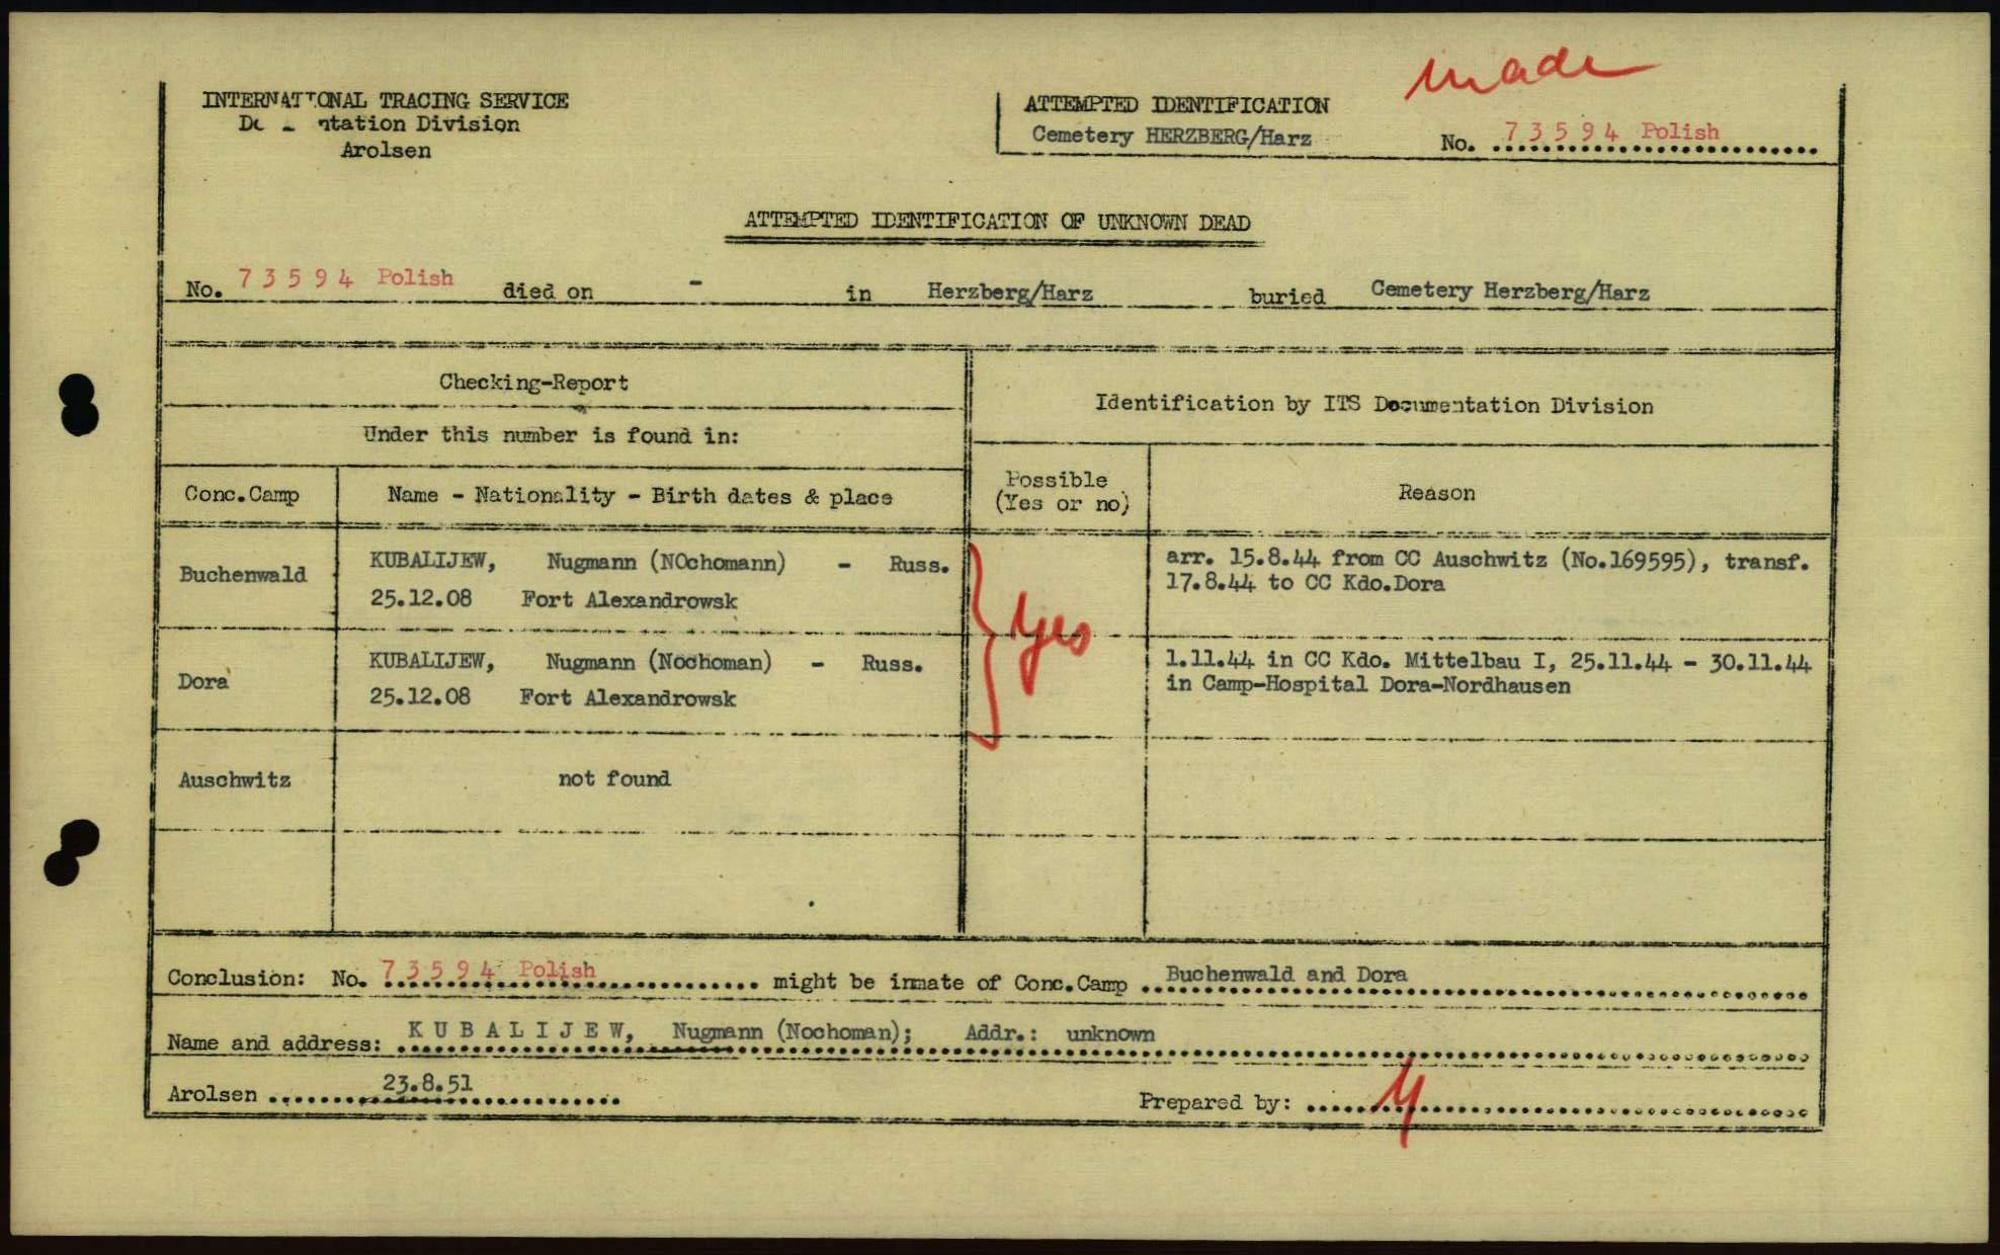 made
INTERNATIONAL TRACING SERVICE
Division
Arolsen
ATTEMPTED IDENTIFICATION
Cemetery HERZBERG/Harz
No. 7 3 5 9 4 Polish
ATTEMPTED IDENTIFICATION OF UNKNOWN DEAD
No. 7 3 5 9 4 Polish died on - in Herzberg/Harz buried Cemetery Herzberg/Harz
Checking-Report
Under this number is found in:
Identification by ITS Documentation Division
Conc.Camp
Name - Nationality - Birth dates & place
Possible
(Yes or no)
Reason
Buchenwald
KUBALIJEW, Nugmann (NOchomann) - Russ.
25.12.08 Fort Alexandrowsk
yes
arr. 15.8.44 from CC Auschwitz (No.169595), transf.
17.8.44 to CC Kdo.Dora
Dora
KUBALIJEW, Nugmann (Nochoman) - Russ.
25.12.08 Fort Alexandrowsk
1.11.44 in CC Kdo. Mittelbau I, 25.11.44 - 30.11.44
in Camp-Hospital Dora-Nordhausen
Auschwitz
not found
Conclusion: No. 7 3 5 9 4 Polish might be inmate of Conc.Camp Buchenwald and Dora
Name and address: K U B A L I J E W, Nugmann (Nochoman); Addr.: unknown
Arolsen 23.8.51
Prepared by: